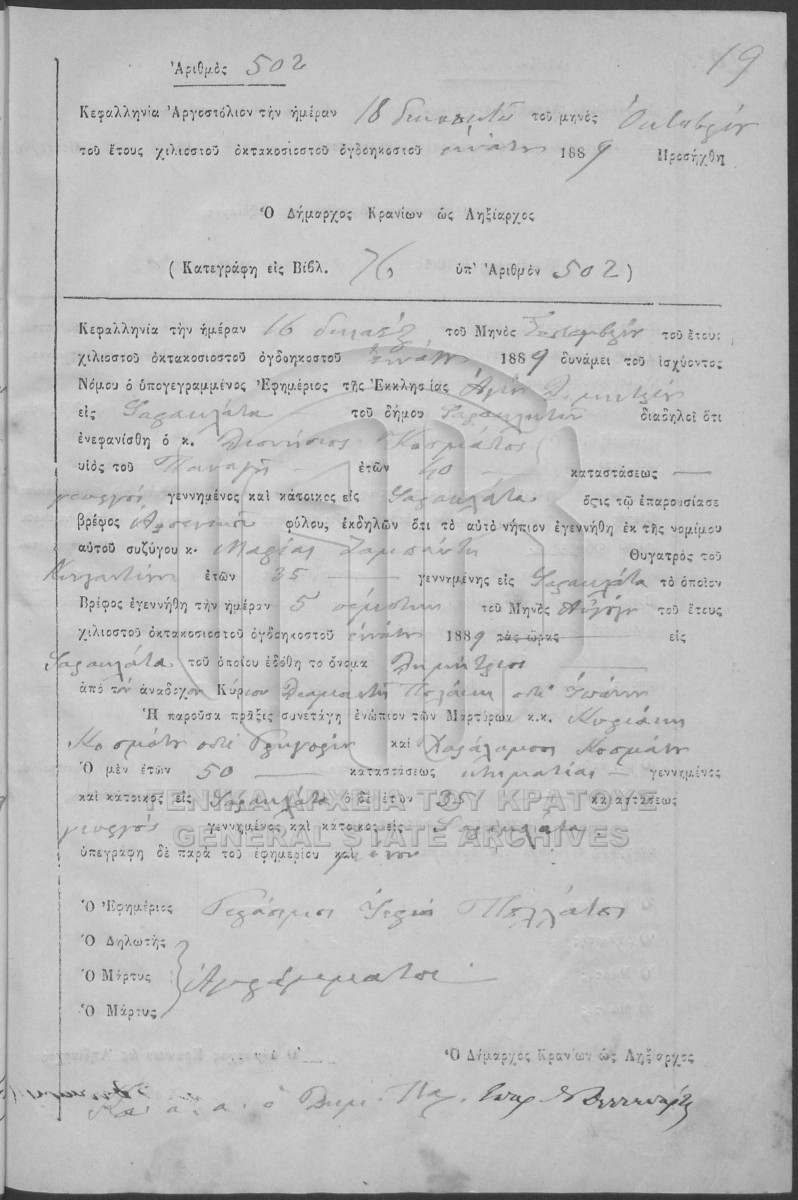 19
Ἀριθμὸς 502
Κεφαλληνία Ἀργοστόλιον τὴν ἡμέραν 18 δεκαοκτὼ τοῦ μηνὸς Ὀκτωβρίου
τοῦ ἔτους χιλιοστοῦ ὀκτακοσιοστοῦ ὀγδοηκοστοῦ ἐννάτου 1889 Προσήχθη
Ὁ Δήμαρχος Κρανίων ὡς Ληξίαρχος
( Κατεγράφη εἰς Βίβλ. 76 ὑπ' Ἀριθμὸν 502 )
Κεφαλληνία τὴν ἡμέραν 16 δεκαέξ τοῦ Μηνὸς Σεπτεμβρίου τοῦ ἔτους
χιλιοστοῦ ὀκτακοσιοστοῦ ὀγδοηκοστοῦ ἐννάτου 1889 δυνάμει τοῦ ἰσχύοντος
Νόμου ὁ ὑπογεγραμμένος Ἐφημέριος τῆς Ἐκκλησίας Ἁγίου Δημητρίου
εἰς Φαρακλάτα τοῦ δήμου διαδηλοῖ ὅτι
ἐνεφανίσθη ὁ κ. Διονύσιος Κοσμάτος
υἱὸς τοῦ Παναγῆ ἐτῶν 40 καταστάσεως
γεωργός γεννημένος καὶ κάτοικος εἰς Φαρακλάτα ὅςτις τῷ ἐπαρουσίασε
βρέφος Ἀρσενικοῦ φύλου, ἐκδηλῶν ὅτι τὸ αὐτὸ νήπιον ἐγεννήθη ἐκ τῆς νομίμου
αὐτοῦ συζύγου κ. Μαρίας Θυγατρὸς τοῦ
Κωνσταντίνου ἐτῶν 35 γεννημένης εἰς Φαρακλάτα τὸ ὁποῖον
Βρέφος ἐγεννήθη τὴν ἡμέραν 5 πέμπτην τοῦ Μηνὸς Αὐγούστου τοῦ ἔτους
χιλιοστοῦ ὀκτακοσιοστοῦ ὀγδοηκοστοῦ ἐννάτου 1889 τὰς ὥρας εἰς
Φαρακλάτα τοῦ ὁποίου ἐδόθη τὸ ὄνομα Δημήτριος
ἀπὸ τὸν ἀνάδοχον Κύριον
Ἡ παροῦσα πρᾶξις συνετάγη ἐνώπιον τῶν Μαρτύρων κ.κ. Κυριάκου
Κοσμάτου ποτὲ Γρηγορίου καὶ Χαράλαμπου Κοσμάτου
Ὁ μὲν ἐτῶν 50 καταστάσεως κτηματίας γεννημένος
καὶ κάτοικος εἰς Φαρακλάτα ὁ δὲ ἐτῶν καταστάσεως
γεωργός γεννημένος καὶ κάτοικος εἰς Φαρακλάτα
ὑπεγράφη δὲ παρὰ τοῦ ἐφημερίου μόνον
ΓΕΝΙΚΑ ΑΡΧΕΙΑ ΤΟΥ ΚΡΑΤΟΥΣ
GENERAL STATE ARCHIVES
Ὁ Ἐφημέριος Γεράσιμος Ἱερεὺς
Ὁ Δηλωτὴς
Ὁ Μάρτυς Ἀγράμματοι
Ὁ Μάρτυς
Ὁ Δήμαρχος Κρανίων ὡς Ληξίαρχος